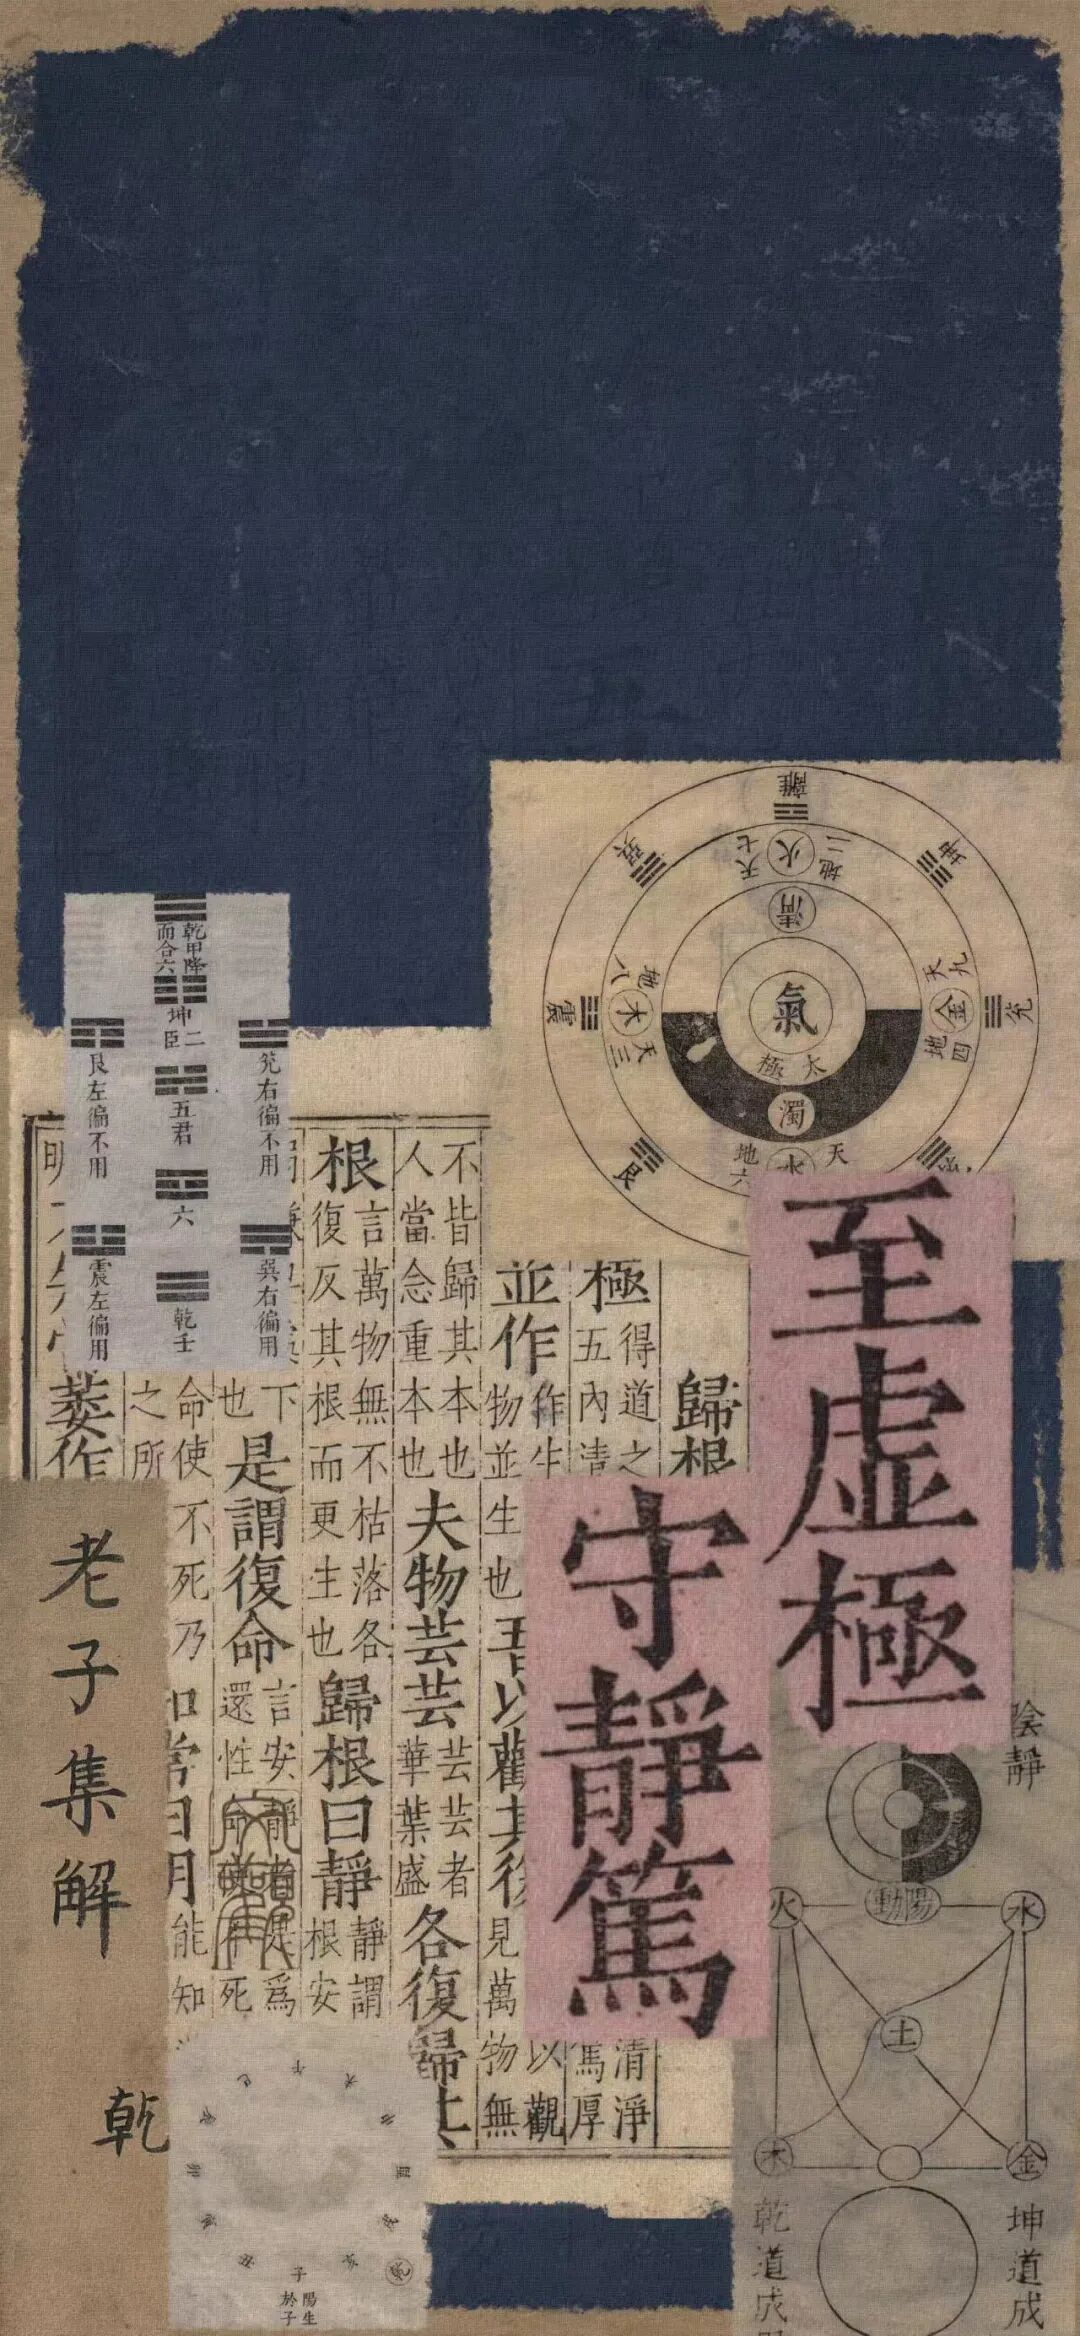 至虛極
守靜篤
離
坤
兌
艮
震
巽
天七
火
地二
清
天九
金
地四
地八
木
天三
氣
太極
濁
天
水
地六
乾甲降
而合六
坤二
臣
五君
六
乾壬
兌右偏不用
巽右偏用
艮左徧不用
震左徧用
歸根
極
得道之
五內清
清淨
篤厚
並作
作生
物並生也
吾以觀其復
以觀
見萬物無
不皆歸其本也
人當念重本也
夫物芸芸
芸芸者
華葉盛
各復歸其
根
言萬物無不枯落各
復反其根而更生也
歸根曰靜
靜謂
根安
下
也
是謂復命
言安靜者是為
還性命使不死
命使不死乃
之所
知常曰明
能知
萎作
老子集解
乾
子
陽生
於子
陰靜
陽動
火
水
土
木
金
乾道成
坤道成